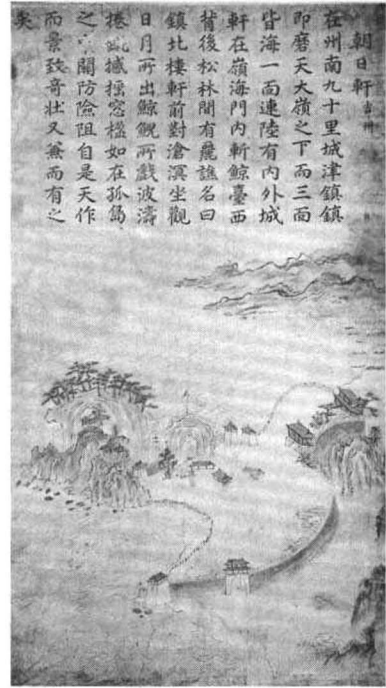 朝日軒 吉州
在州南九十里城津鎮鎮
即磨天大嶺之下而三面
皆海一面連陸有內外城
軒在嶺海門內斬鯨臺西
背後松林間有麗譙名曰
鎮北樓軒前對滄溟坐觀
日月所出鯨鯢所戲波濤
捲撼搖窓櫺如在孤島
之中關防險阻自是天作
而景致奇壯又兼而有之
矣